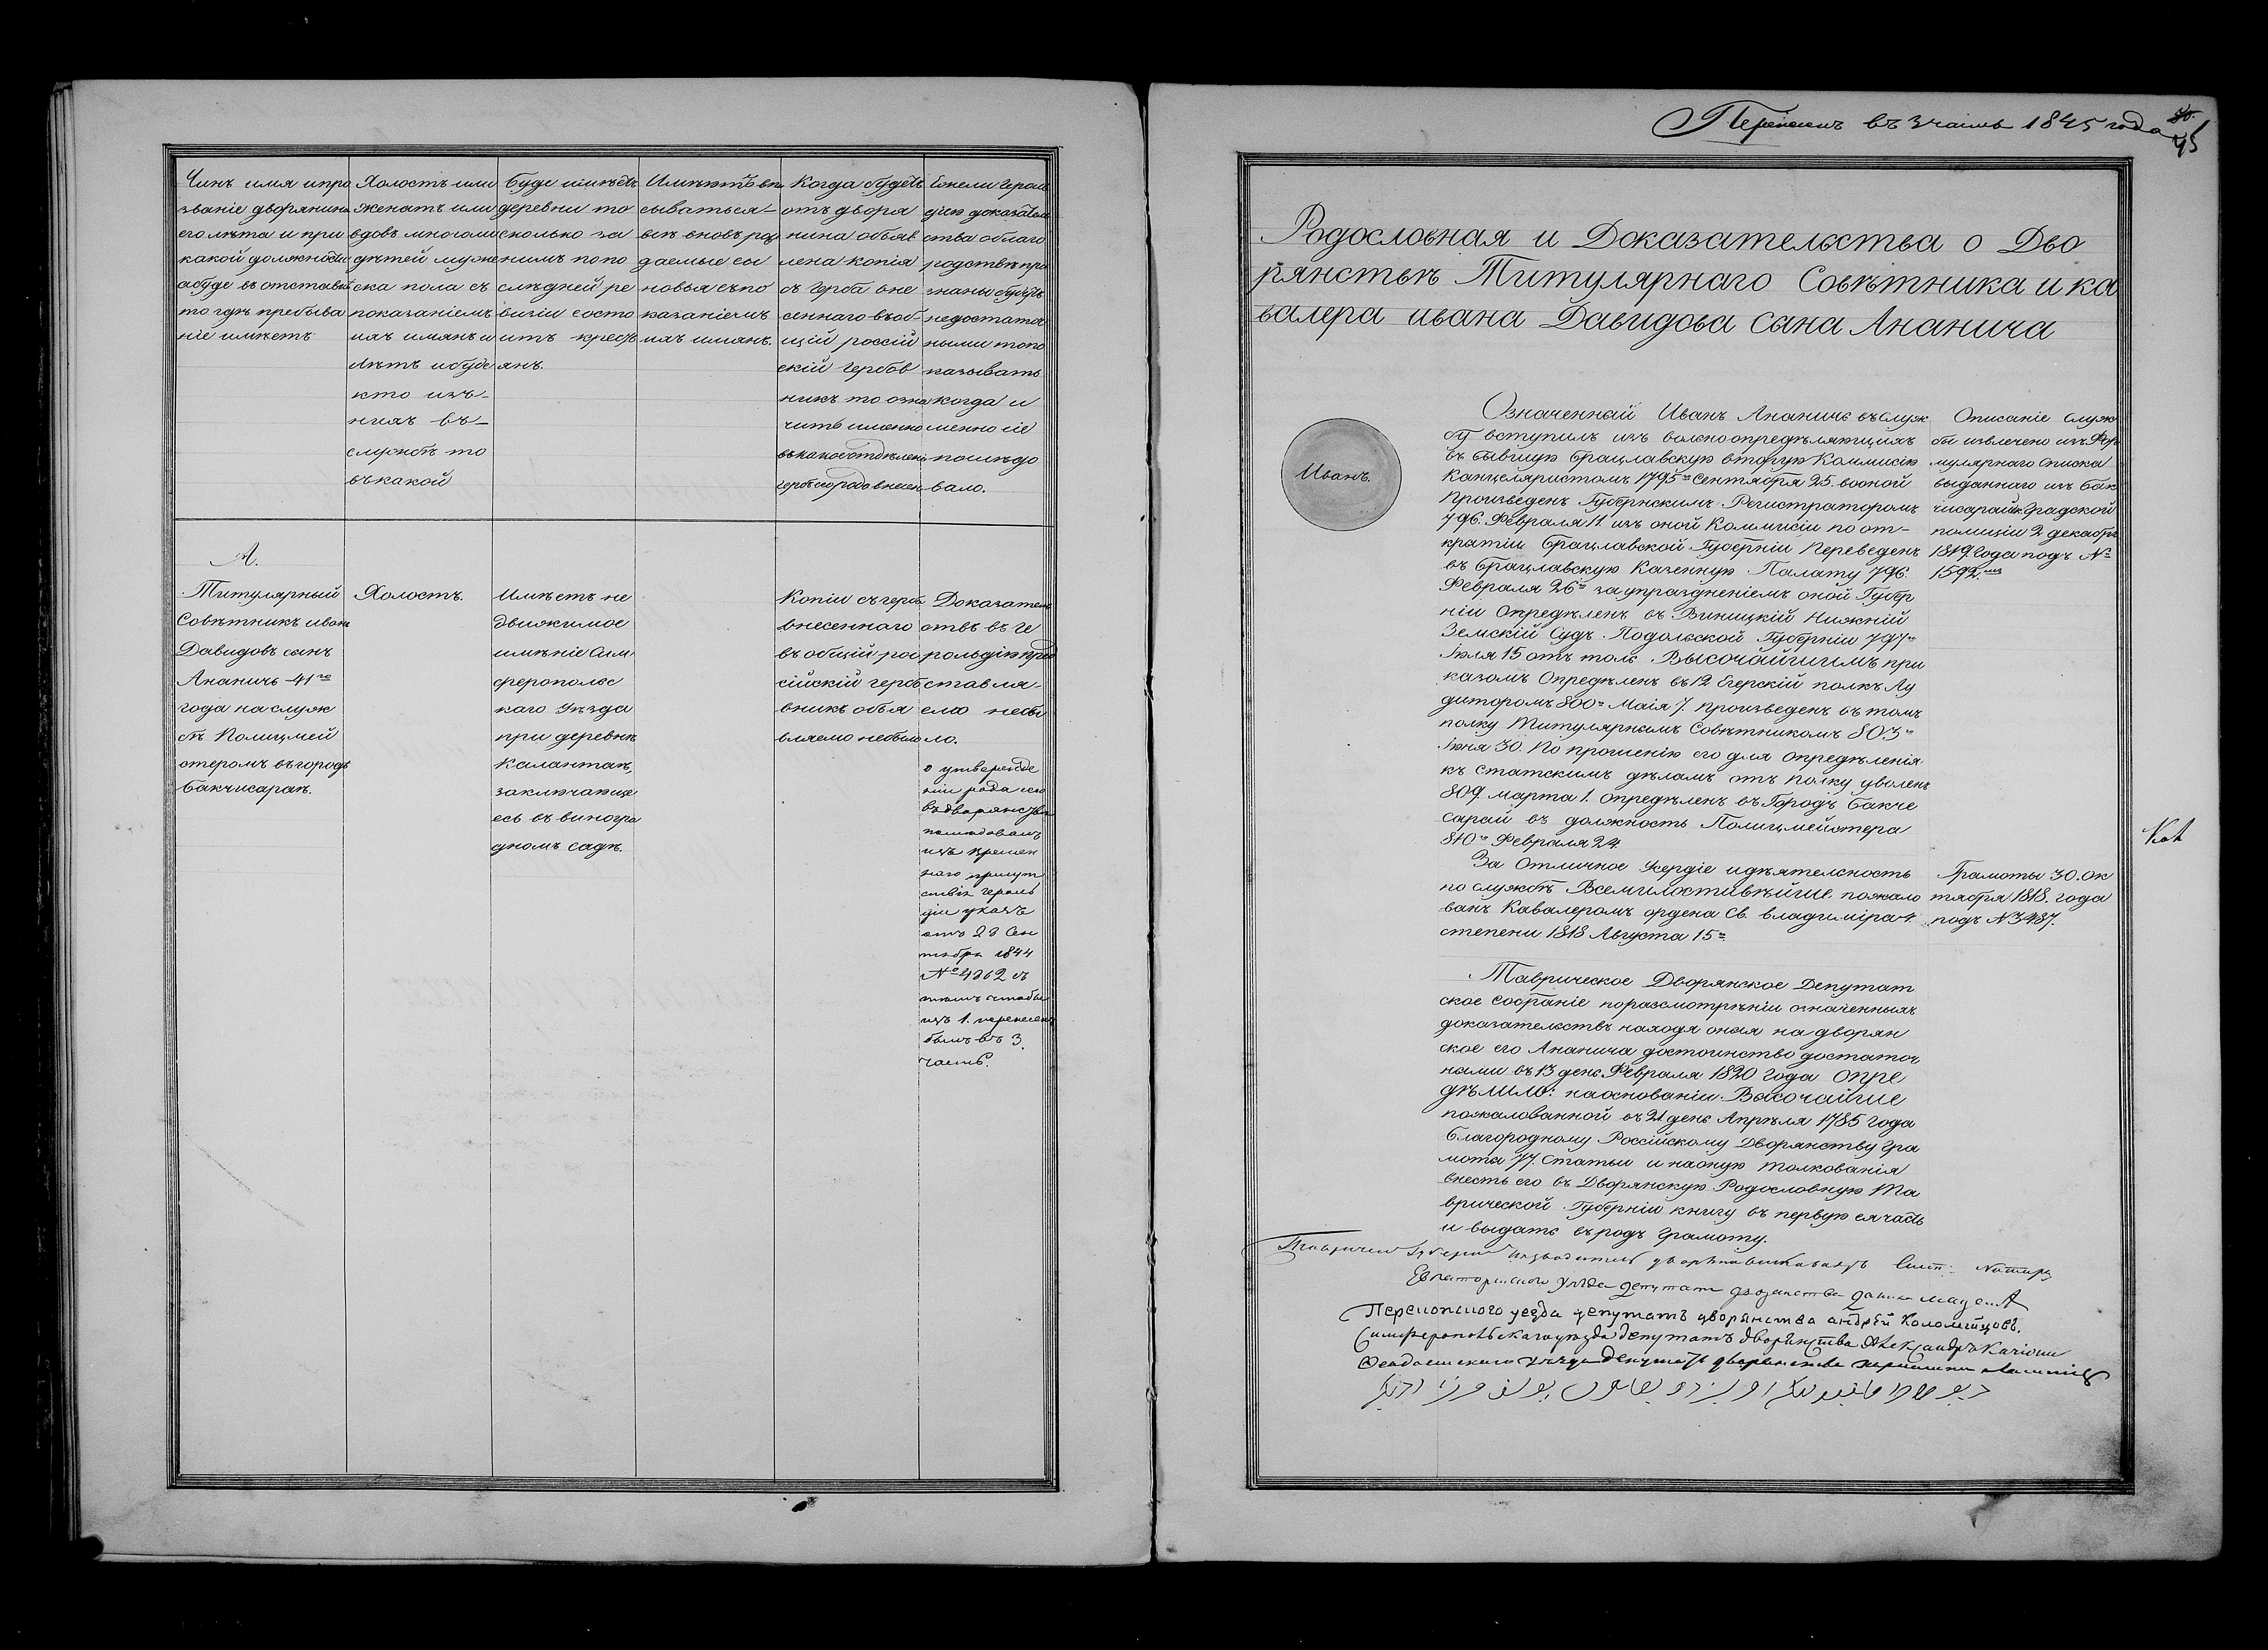 Чинъ имя и про
званіе дворянина
его лѣта и при
какой должности
а буде въ отставкѣ
то гдѣ пребыва
ніе имѣетъ
Холостъ или
женатъ или
вдовъ многоли
дѣтей муже
ска пола съ
показаніемъ
ихъ имянъ и
лѣтъ и буде
кто изъ-
нихъ въ-
службѣ то
въ какой
Буде имѣетъ
деревни то
сколько за
нимъ по по
слѣдней ре
визіи состо
итъ кресть
янъ.
Имѣютъ впи
сываться-
всѣ вновь рож
даемые сы
новья съ по
казаніемъ
ихъ имянъ.
Когда будетъ
отъ дворя
нина объяв
лена копія
съ герба вне
сеннаго въ об-
щій россій
скій гербов
никъ то озна
чить именно
въ какое отдѣленіе
гербъ его рода внесенъ
Ежели герол
діею доказатель
ства о благо
родствѣ при
знаны будутъ
недостаточ
ными то по
казывать
когда и
менно сіе
послѣдо
вало.
А.
Титулярный
Совѣтникъ иванъ
Давидовъ сынъ
Ананичъ 41го
года на служ
бѣ Полицмей
стеромъ въ городѣ
Бакчисараѣ.
Холостъ.
Имѣетъ не
движимое
имѣніе Сим
ферополь
каго уѣзда
при деревнѣ
Калантаѣ,
заключающе
есь въ виногра
дномъ садѣ.
Копіи съ герба
внесеннаго
въ общій рос
сійскій герб
вникъ объя
вляемо небыло
Доказатель
ствъ въ Ге
рольдію пред
ставля-
емо небы
ло.
о утвержде
ніи рода его
въ дворянствѣ
послѣдовалъ
изъ времен
наго присут
ствія Героль
діи указъ
отъ 23 Сен
тября 1844
№ 4362 съ
тѣмъ чтобы
изъ 1. перенесенъ
былъ въ 3.
часть.
Перенесенъ въ 3 часть 1845 года
45
Родословная и Доказательства о Дво
рянствѣ Титулярнаго Совѣтника и ка
валера ивана Давидова сына Ананича
Иванъ.
Означенный Иванъ Ананичъ въ служ
бу вступилъ изъ вольноопредѣляющихся
въ бывшую Брацлавскую вторую Коммисію
Канцеляристомъ 1795го Сентября 25. во оной
Произведенъ Губернскимъ Регистраторомъ
796. Февраля 11. изъ оной Коммисіи по от-
крытіи Брацлавской Губерніи переведенъ
въ Брацлавскую Казенную Палату 796.
Февраля 26го за упраздненіемъ оной Губер
ніи опредѣленъ въ Виницкій Нижній
Земскій Судъ Подольской Губерніи 797го
Іюля 15 отъ толь Высочайшимъ при
казомъ Опредѣленъ въ 12 Егерскій полкъ Ау
диторомъ 800го Маія 7. произведенъ въ томъ
полку Титулярнымъ Совѣтникомъ 803го
Іюня 30. По прошенію его для опредѣленія
къ статскимъ дѣламъ отъ полку уволенъ
809. марта 1. опредѣленъ въ Городъ Бакче
сарай въ должность Полицмейстера
810го Февраля 24.
За Отличное Усердіе и дѣятелность
по службѣ Всемилостивѣйше пожало
ванъ Кавалеромъ ордена Св. владиміра 4.
степени 1818 Августа 15го
Таврическое Дворянское Депутат
ское Собраніе по разсмотрѣніи означенныхъ
доказательствъ находя оныя на дворян
ское его Ананича достоинство достаточ
ными въ 13 день Февраля 1820 года опре
дѣлило: на основаніи Высочайше
пожалованной въ 21 день Апрѣля 1785 года
благородному Россійскому Дворянству Гра
моты 77. статьи и на оную толкованія
внесть его въ Дворянскую Родословную Та
врической Губерніи книгу въ первую ея часть
и выдать въ родъ Грамоту.
Описаніе служ
бы извлечено изъ Фор
мулярнаго Списка
выданнаго изъ Бак
чисарайск. Градской
полиціи 2 декабря
1819. года подъ №
1592.мъ
Грамоты 30. Ок
тября 1818. года
подъ № 3487.
Евпаторійского Уѣзда депутатъ дворянства
Перекопского уезда депутатъ дворянства андрей Коломійцовъ.
Симферопольскаго уѣзда депутатъ дворянства Александръ Качіони
Феодосійскаго уѣзда депутатъ дворянства